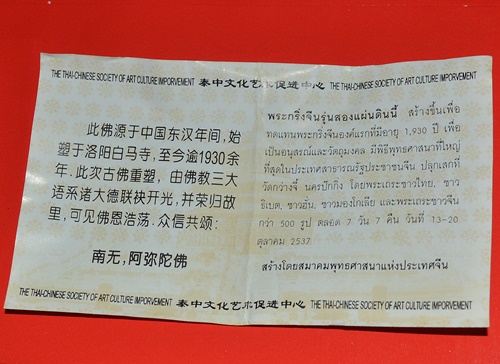 THE THAI-CHINESE SOCIETY OF ART CULTURE IMPORVEMENT 泰中文化艺术促进中心 THE THAI-CHINESE SOCIETY OF ART CULTURE IMPORVEMENT
此佛源于中国东汉年间，始
塑于洛阳白马寺，至今逾1930余
年．此次古佛重塑，由佛教三大
语系诸大德联袂开光，并荣归故
里，可见佛恩浩荡．众信共颂：
南无，阿弥陀佛
พระกริ่งจีนรุ่นสองแผ่นดินนี้ สร้างขึ้นเพื่อ
ทดแทนพระกริ่งจีนองค์แรกที่มีอายุ 1,930 ปี เพื่อ
เป็นอนุสรณ์และวัตถุมงคล มีพิธีพุทธศาสนาที่ใหญ่
ที่สุดในประเทศสาธารณรัฐประชาชนจีน ปลุกเสกที่
วัดกว่างจี้ นครปักกิ่ง โดยพระเถระชาวไทย, ชาว
ธิเบต, ชาวฮั่น, ชาวมองโกเลีย และพระเถระชาวจีน
กว่า 500 รูป ตลอด 7 วัน 7 คืน วันที่ 13-20
ตุลาคม 2537
สร้างโดยสมาคมพุทธศาสนาแห่งประเทศจีน
THE THAI-CHINESE SOCIETY OF ART CULTURE IMPORVEMENT 泰中文化艺术促进中心 THE THAI-CHINESE SOCIETY OF ART CULTURE IMPORVEMENT